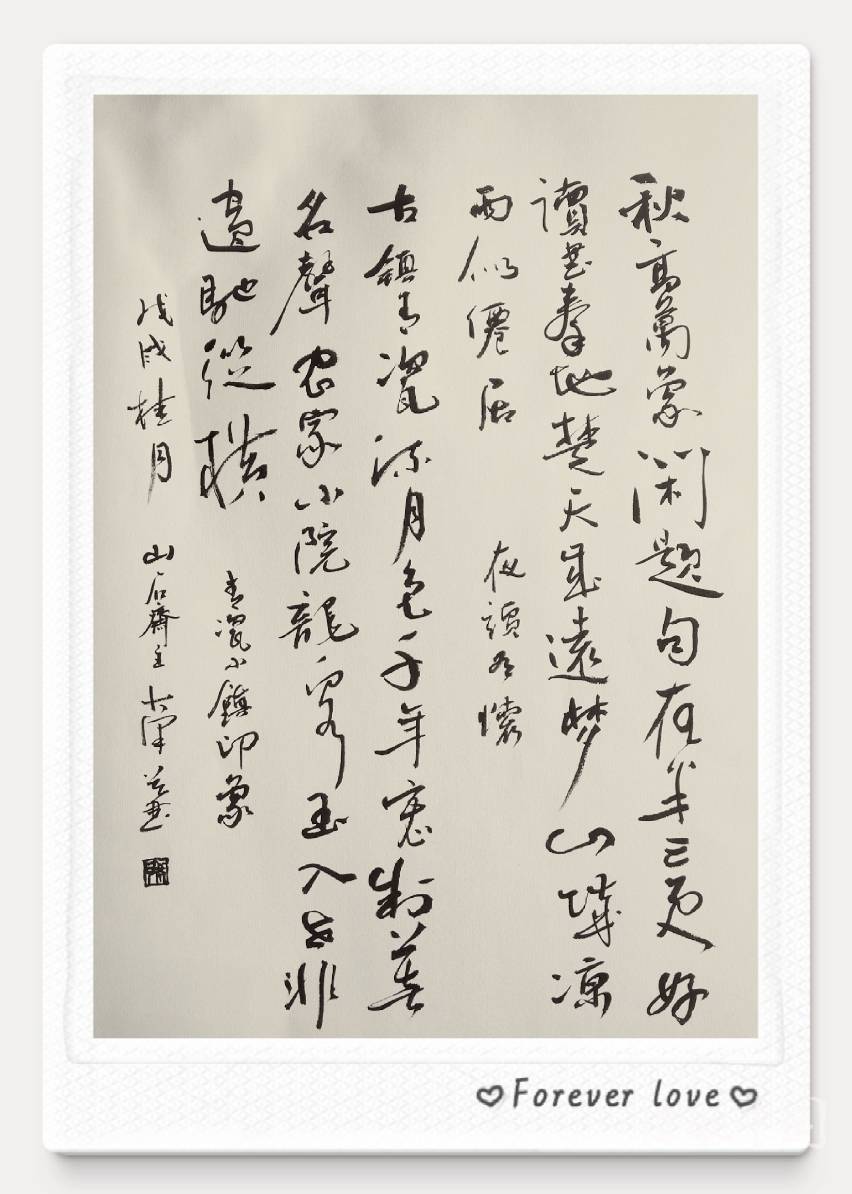 秋高萬象閑題句在半三更好
讀書拳地楚天成遠夢山 凉
雨似僊居
夜讀有懷
古鎮青瓷流月色千年窑制著
名聲农家小院龍 客 玉入 非
遺馳從橫
青瓷小鎮印象
戊戌桂月
山石齋主
Forever love